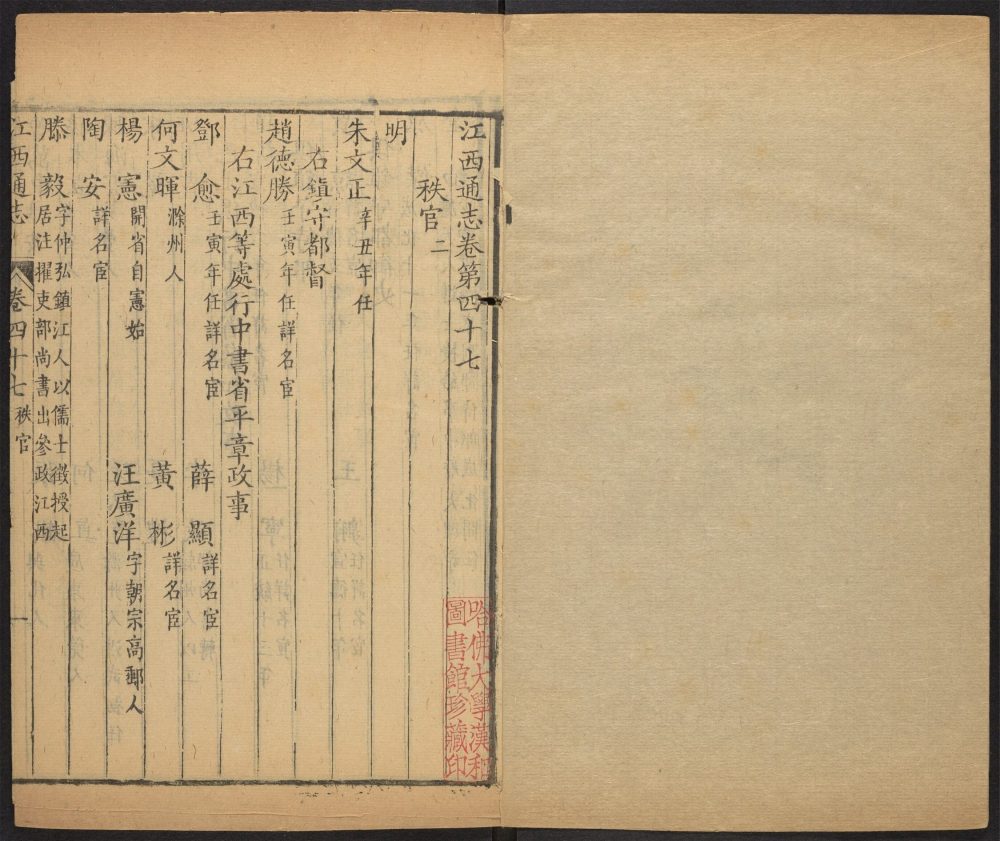 江西通志卷第四十七
秩官二
明
朱文正 辛丑年任
右鎮守都督
趙德勝 壬寅年任詳名宦
右江西等處行中書省平章政事
鄧愈 壬寅年任詳名宦 薛顯 詳名宦
何文暉 滁州人 黃彬 詳名宦
楊憲 開省自憲始 汪廣洋 字朝宗高郵人
陶安 詳名宦
滕毅 字仲弘鎮江人以儒士徵授起
居注擢吏部尚書出參政江西
江西通志 卷四十七 秩官 一
哈佛大學漢和
圖書館珍藏印